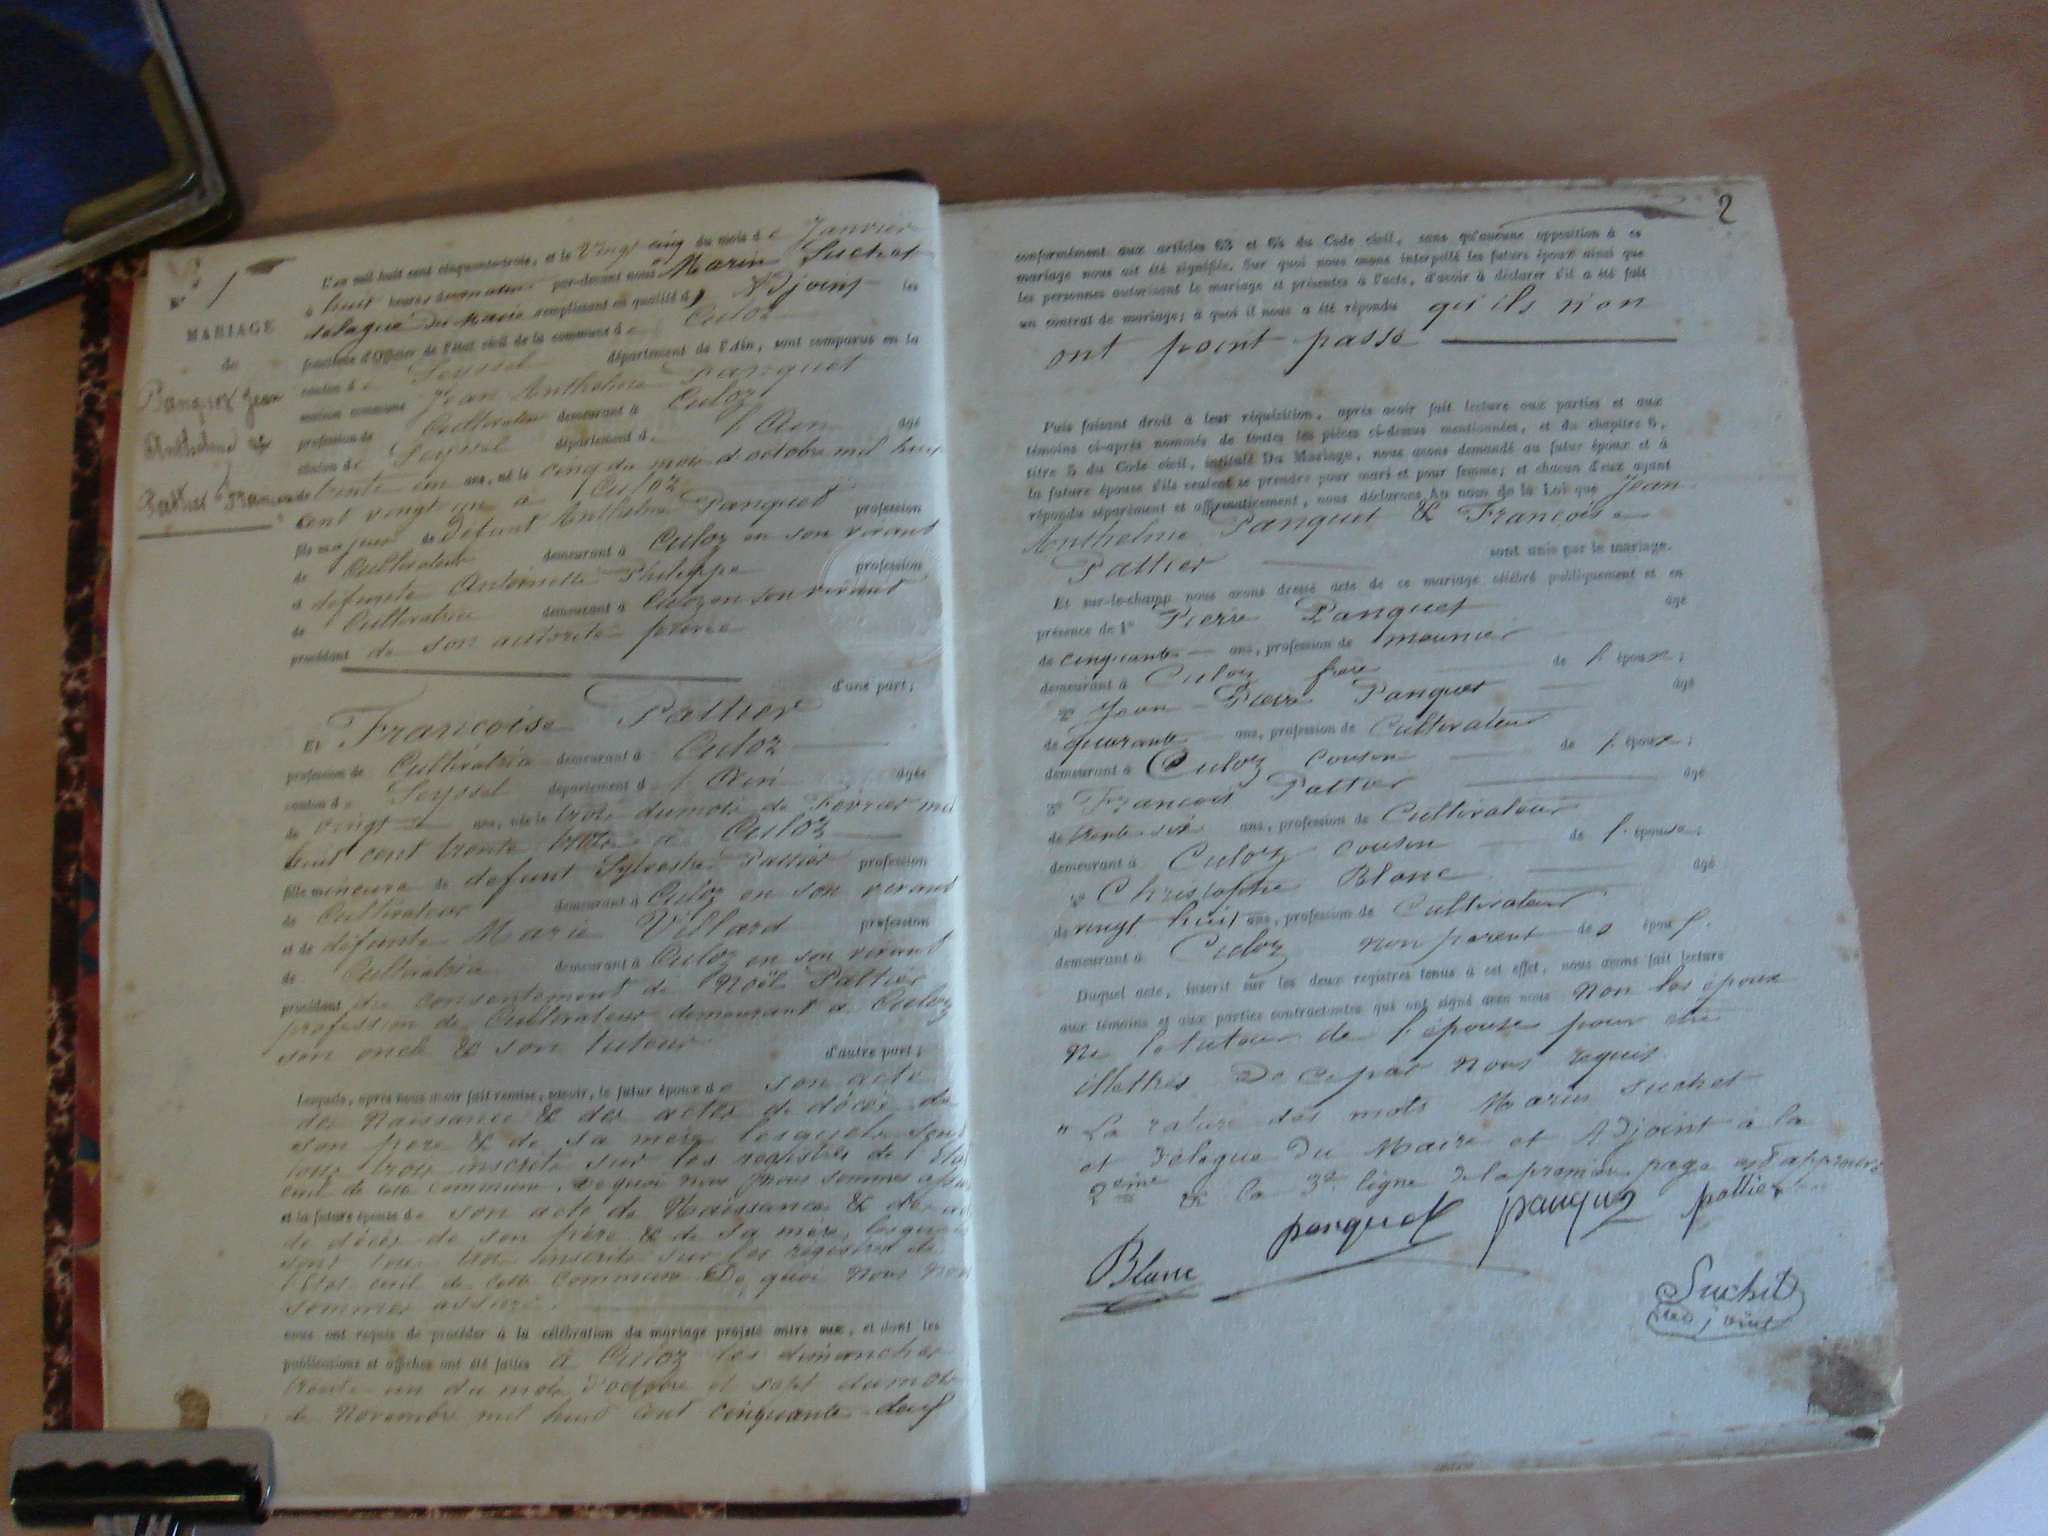 N° 1
MARIAGE
de
Panquet Jean
Anthelme &
Pattier Françoise
L'an mil huit cent cinquante-trois, et le Vingt cinq du mois de Janvier
à huit heures du matin par-devant nous Marin Suchet
délégué du Maire remplissant en qualité d' Adjoint les
fonctions d'Officier de l'état civil de la commune de Culoz
canton de Seyssel département de l'Ain, sont comparus en la
maison commune Jean Anthelme Panquet
profession de Cultivateur demeurant à Culoz
canton de Seyssel département de l'Ain âgé
de trente un ans, né le cinq du mois d'octobre mil huit
cent vingt un à Culoz
fils majeur de Défunt Anthelme Panquet profession
de Cultivateur demeurant à Culoz en son vivant
et défunte Antoinette Philippe profession
de Cultivatrice demeurant à Culoz en son vivant
procédant de son autorité privée
d'une part;
Et Françoise Pattier
profession de Cultivatrice demeurant à Culoz
canton de Seyssel département de l'Ain âgée
de vingt ans, née le trois du mois de Février mil
huit cent trente trois à Culoz
fille mineure de défunt Sylvestre Pattier profession
de Cultivateur demeurant à Culoz en son vivant
et de défunte Marie Villard profession
de Cultivatrice demeurant à Culoz en son vivant
procédant du consentement de Noël Pattier
profession de Cultivateur demeurant à Culoz
son oncle & son tuteur
d'autre part;
Lesquels, après nous avoir fait remise, savoir, le futur époux de son acte
de Naissance & des actes de décès de
son père & de sa mère lesquels sont
tous trois inscrits sur les registres de l'Etat
civil de cette commune. De quoi nous nous sommes assuré
et la future épouse de son acte de Naissance & des actes
de décès de son père & de sa mère, lesquels
sont tous trois inscrits sur les registres de
l'Etat civil de cette commune De quoi nous nous
sommes assuré.
nous ont requis de procéder à la célébration du mariage projeté entre eux, et dont les
publications et affiches ont été faites à Culoz les dimanches
trente-un du mois d'octobre et sept du mois
de Novembre mil huit cent cinquante-deux
2
conformément aux articles 63 et 64 du Code civil, sans qu'aucune opposition à ce
mariage nous ait été signifiée. Sur quoi nous avons interpellé les futurs époux ainsi que
les personnes autorisant le mariage et présentes à l'acte, d'avoir à déclarer s'il a été fait
un contrat de mariage; à quoi il nous a été répondu qu'ils n'on
ont point passé
Puis faisant droit à leur réquisition, après avoir fait lecture aux parties et aux
témoins ci-après nommés de toutes les pièces ci-dessus mentionnées, et du chapitre 6,
titre 5 du Code civil, intitulé Du Mariage, nous avons demandé au futur époux et à
la future épouse s'ils veulent se prendre pour mari et pour femme; et chacun d'eux ayant
répondu séparément et affirmativement, nous déclarons Au nom de la Loi que Jean
Anthelme Panquet & Françoise
Pattier sont unis par le mariage.
Et sur-le-champ nous avons dressé acte de ce mariage célébré publiquement et en
présence de 1° Pierre Panquet âgé
de cinquante ans, profession de meunier
demeurant à Culoz frère de l'époux;
2° Jean-Pierre Panquet âgé
de quarante ans, profession de Cultivateur
demeurant à Culoz cousin de l'époux;
3° François Pattier âgé
de trente-six ans, profession de Cultivateur
demeurant à Culoz cousin de l'épouse;
4° Christophe Blanc âgé
de vingt huit ans, profession de Cultivateur
demeurant à Culoz non parent des époux.
Duquel acte, inscrit sur les deux registres tenus à cet effet, nous avons fait lecture
aux témoins et aux parties contractantes qui ont signé avec nous Non les époux
Ni le tuteur de l'épouse pour être
illettrés De ce par Nous requis
" La rature des mots Marin Suchet
et Délégué du Maire et Adjoint à la
2ème & la 3e ligne de la première page est approuvé
Blanc panquet panquet pattier
Suchet
adjoint